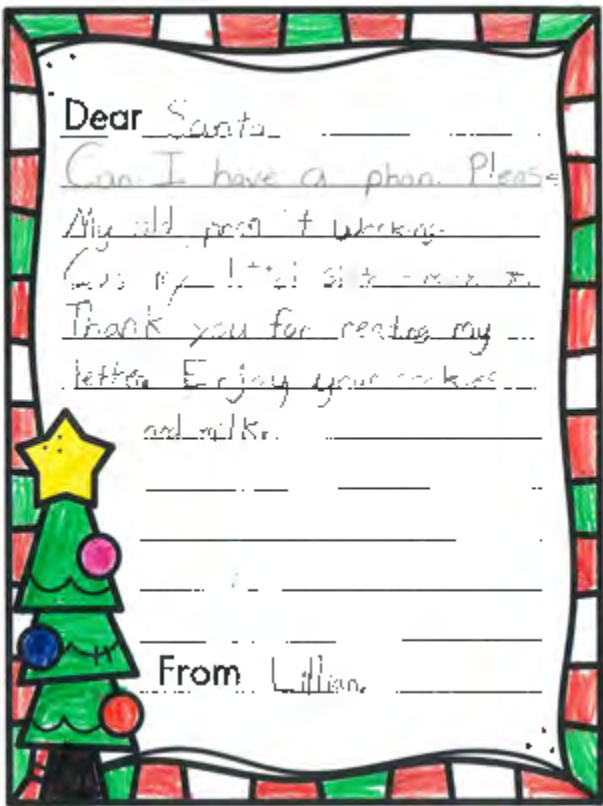 Dear Santa
Can I have a phon. Please
My old phon 't working.
Cus my
Thank you for reading my
letter. Enjoy your cookies
and milk.
From Lillian.